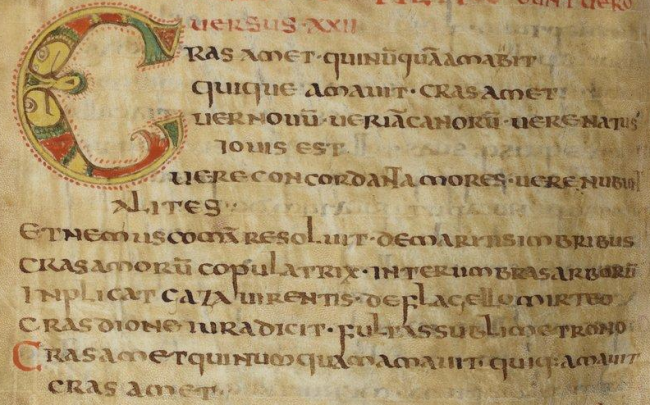 UERSUS·XXII
CRAS AMET·quinūquāamabit
quique amauit·cras amet
uer nouū·ueriācanorū·uere natus
iouis est
uere concordant amores·uere nubun
alites··
et nemus comā resoluit·de maritis imbribus
cras amorū copulatrix·inter umbras arborū
inplicat caza uirentis·de flagello mirteo
cras dione iura dicit·fultas sublime trono
Cras amet qui numquam amauit·quiq·amauit
cras amet·